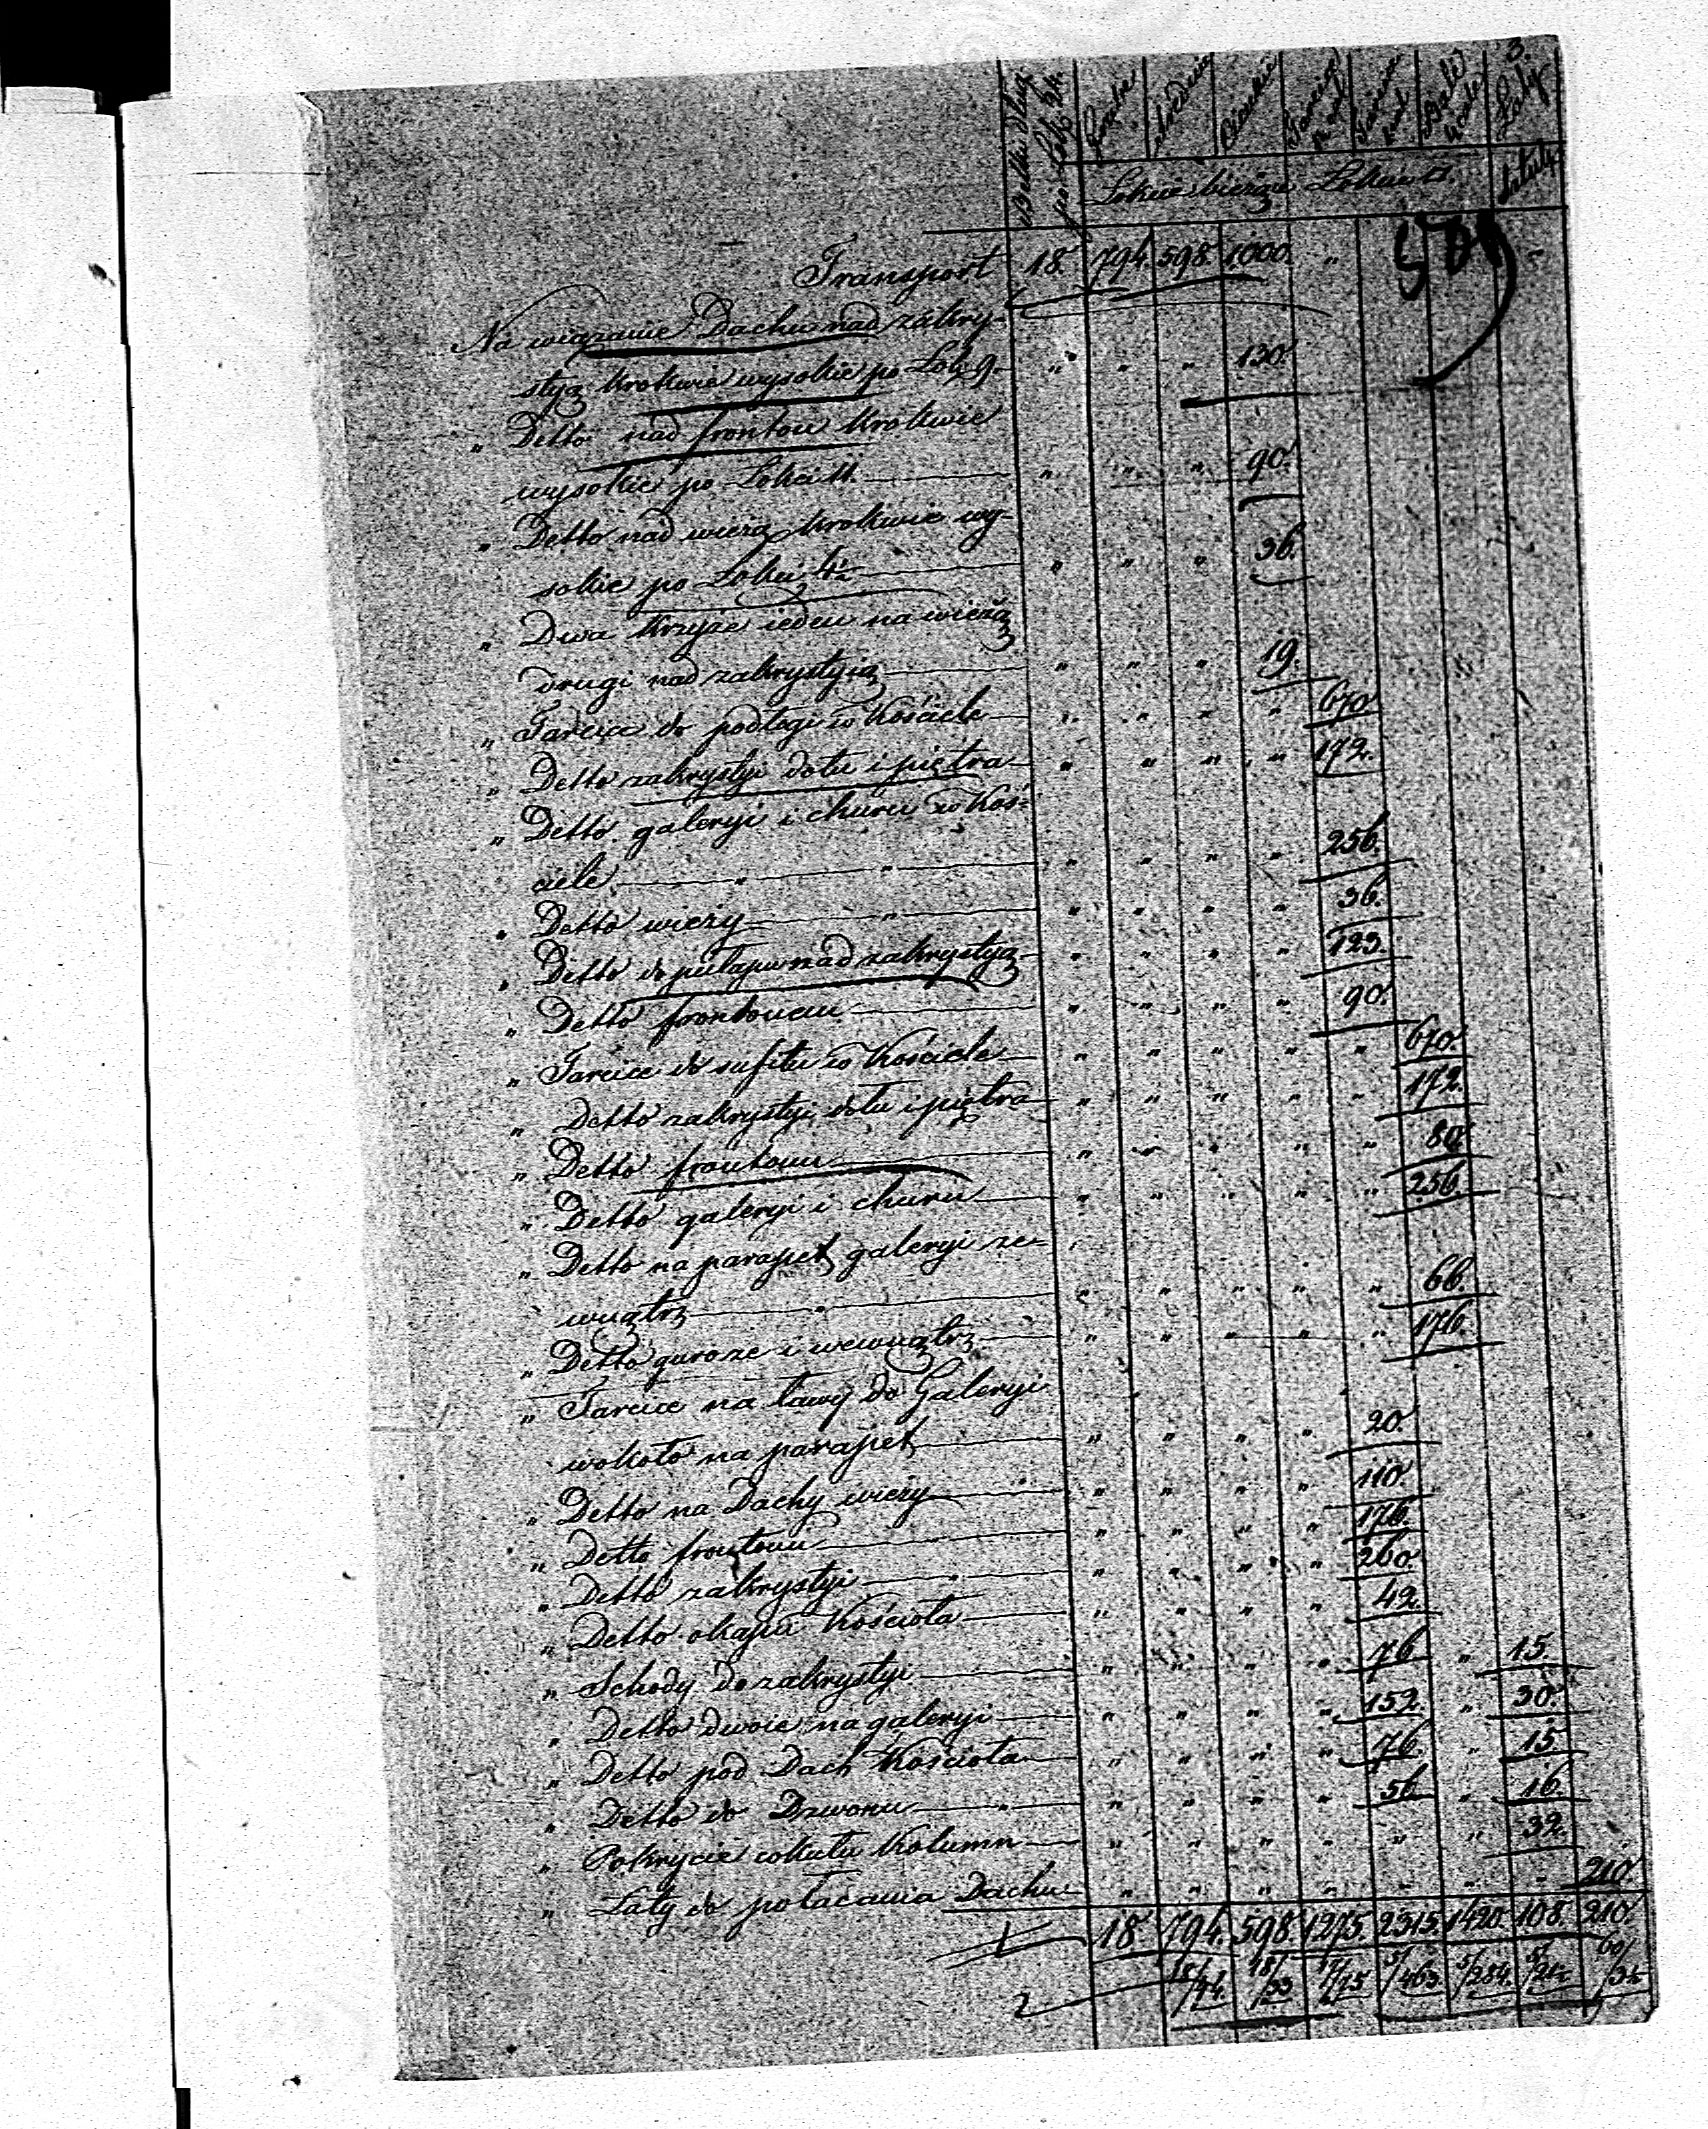 3.
Belki dług. po Łok. 24. Grube średnie Cienkie Tarcice Tarcice Bale Łaty
Łokcie bieżące Łokcie □. sztuk
509
Transport 18. 794. 598. 1000. "
Na wiązanie Dachu nad zakry-
styą krokwie wysokie po Łok. 9. " " " 130.
" Detto nad fronton krokwie
wysokie po Łokci 11. " " " 90.
" Detto nad wieżą krokwie wy-
sokie po Łokci 4½ " " " 36.
" Dwa krzyże ieden na wieżą
drugi nad zakrystyią " " " 19.
" Tarcice do podłogi w Kościele " " " " 670.
" Detto zakrystyi dołu i piętra " " " " 172.
" Detto galeryi i churu w Koś-
ciele " " " " " " 256.
" Detto wieży " " " " " 36.
" Detto do pułapu nad zakrystyą " " " " 123.
" Detto frontonem " " " " 90.
" Tarcice do sufitu w Kościele " " " " " 670.
" Detto zakrystyi dołu i piętra " " " " " 172.
" Detto frontonu " " " " " 80.
" Detto galeryi i churu " " " " " 256.
" Detto na parapet galeryi ze-
wnątrz " " " " " " 66.
" Detto gurone i wewnątrz " " " " " 176.
" Tarcice na ławy do Galeryi
wokoło na parapet " " " " 20.
" Detto na Dachy wieży " " " " 110.
" Detto frontonu " " " " 176.
" Detto zakrystyi " " " " 260.
" Detto okapu Kościoła " " " " 42.
" Schody do zakrystyi " " " " 76. " 15.
" Detto dwoie na galeryi " " " " 152. " 30.
" Detto pod Dach Kościoła " " " " 76. " 15.
" Detto do Dzwonu " " " " 56. " 16.
" Pokrycie cokułu Kolumn " " " " " " 32.
" Łaty do połacania Dachu " " " " " " " 210.
18. 794. 598. 1275. 2315. 1420. 108. 210.
18/44. 18/33 17/75 5/463. 5/284. 5/21½ 60/3½